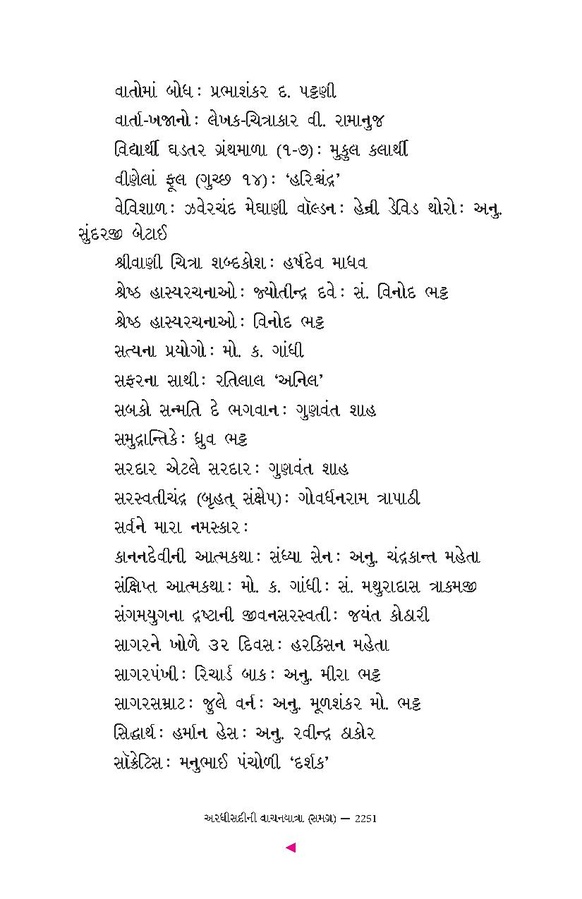 વાતોમાં બોધ: પ્રભાશંકર દ. પટ્ટણી
વાર્તા-ખજાનો: લેખક-ચિત્રાકાર વી. રામાનુજ
વિદ્યાર્થી ઘડતર ગ્રંથમાળા (૧-૭): મુકુલ કલાર્થી
વીણેલાં ફૂલ (ગુચ્છ ૧૪): ‘હરિશ્ચંદ્ર’
વેવિશાળ: ઝવેરચંદ મેઘાણી વૉલ્ડન: હેન્રી ડેવિડ થોરો: અનુ.
સુંદરજી બેટાઈ
શ્રીવાણી ચિત્રા શબ્દકોશ: હર્ષદેવ માધવ
શ્રેષ્ઠ હાસ્યરચનાઓ: જ્યોતીન્દ્ર દવે: સં. વિનોદ ભટ્ટ
શ્રેષ્ઠ હાસ્યરચનાઓ: વિનોદ ભટ્ટ
સત્યના પ્રયોગો: મો. ક. ગાંધી
સફરના સાથી: રતિલાલ ‘અનિલ’
સબકો સન્મતિ દે ભગવાન: ગુણવંત શાહ
સમુદ્રાન્તિકે: ધ્રુવ ભટ્ટ
સરદાર એટલે સરદાર: ગુણવંત શાહ
સરસ્વતીચંદ્ર (બૃહત્ સંક્ષેપ): ગોવર્ધનરામ ત્રાપાઠી
સર્વને મારા નમસ્કાર:
કાનનદેવીની આત્મકથા: સંધ્યા સેન: અનુ. ચંદ્રકાન્ત મહેતા
સંક્ષિપ્ત આત્મકથા: મો. ક. ગાંધી: સં. મથુરાદાસ ત્રાકમજી
સંગમયુગના દ્રષ્ટાની જીવનસરસ્વતી: જયંત કોઠારી
સાગરને ખોળે ૩૨ દિવસ: હરકિસન મહેતા
સાગરપંખી: રિચાર્ડ બાક: અનુ. મીરા ભટ્ટ
સાગરસમ્રાટ: જુલે વર્ન: અનુ. મૂળશંકર મો. ભટ્ટ
સિદ્ધાર્થ: હર્માન હેસ: અનુ. રવીન્દ્ર ઠાકોર
સૉક્રેટિસ: મનુભાઈ પંચોળી ‘દર્શક’
અરધીસદીની વાચનયાત્રા (સમગ્ર) — 2251